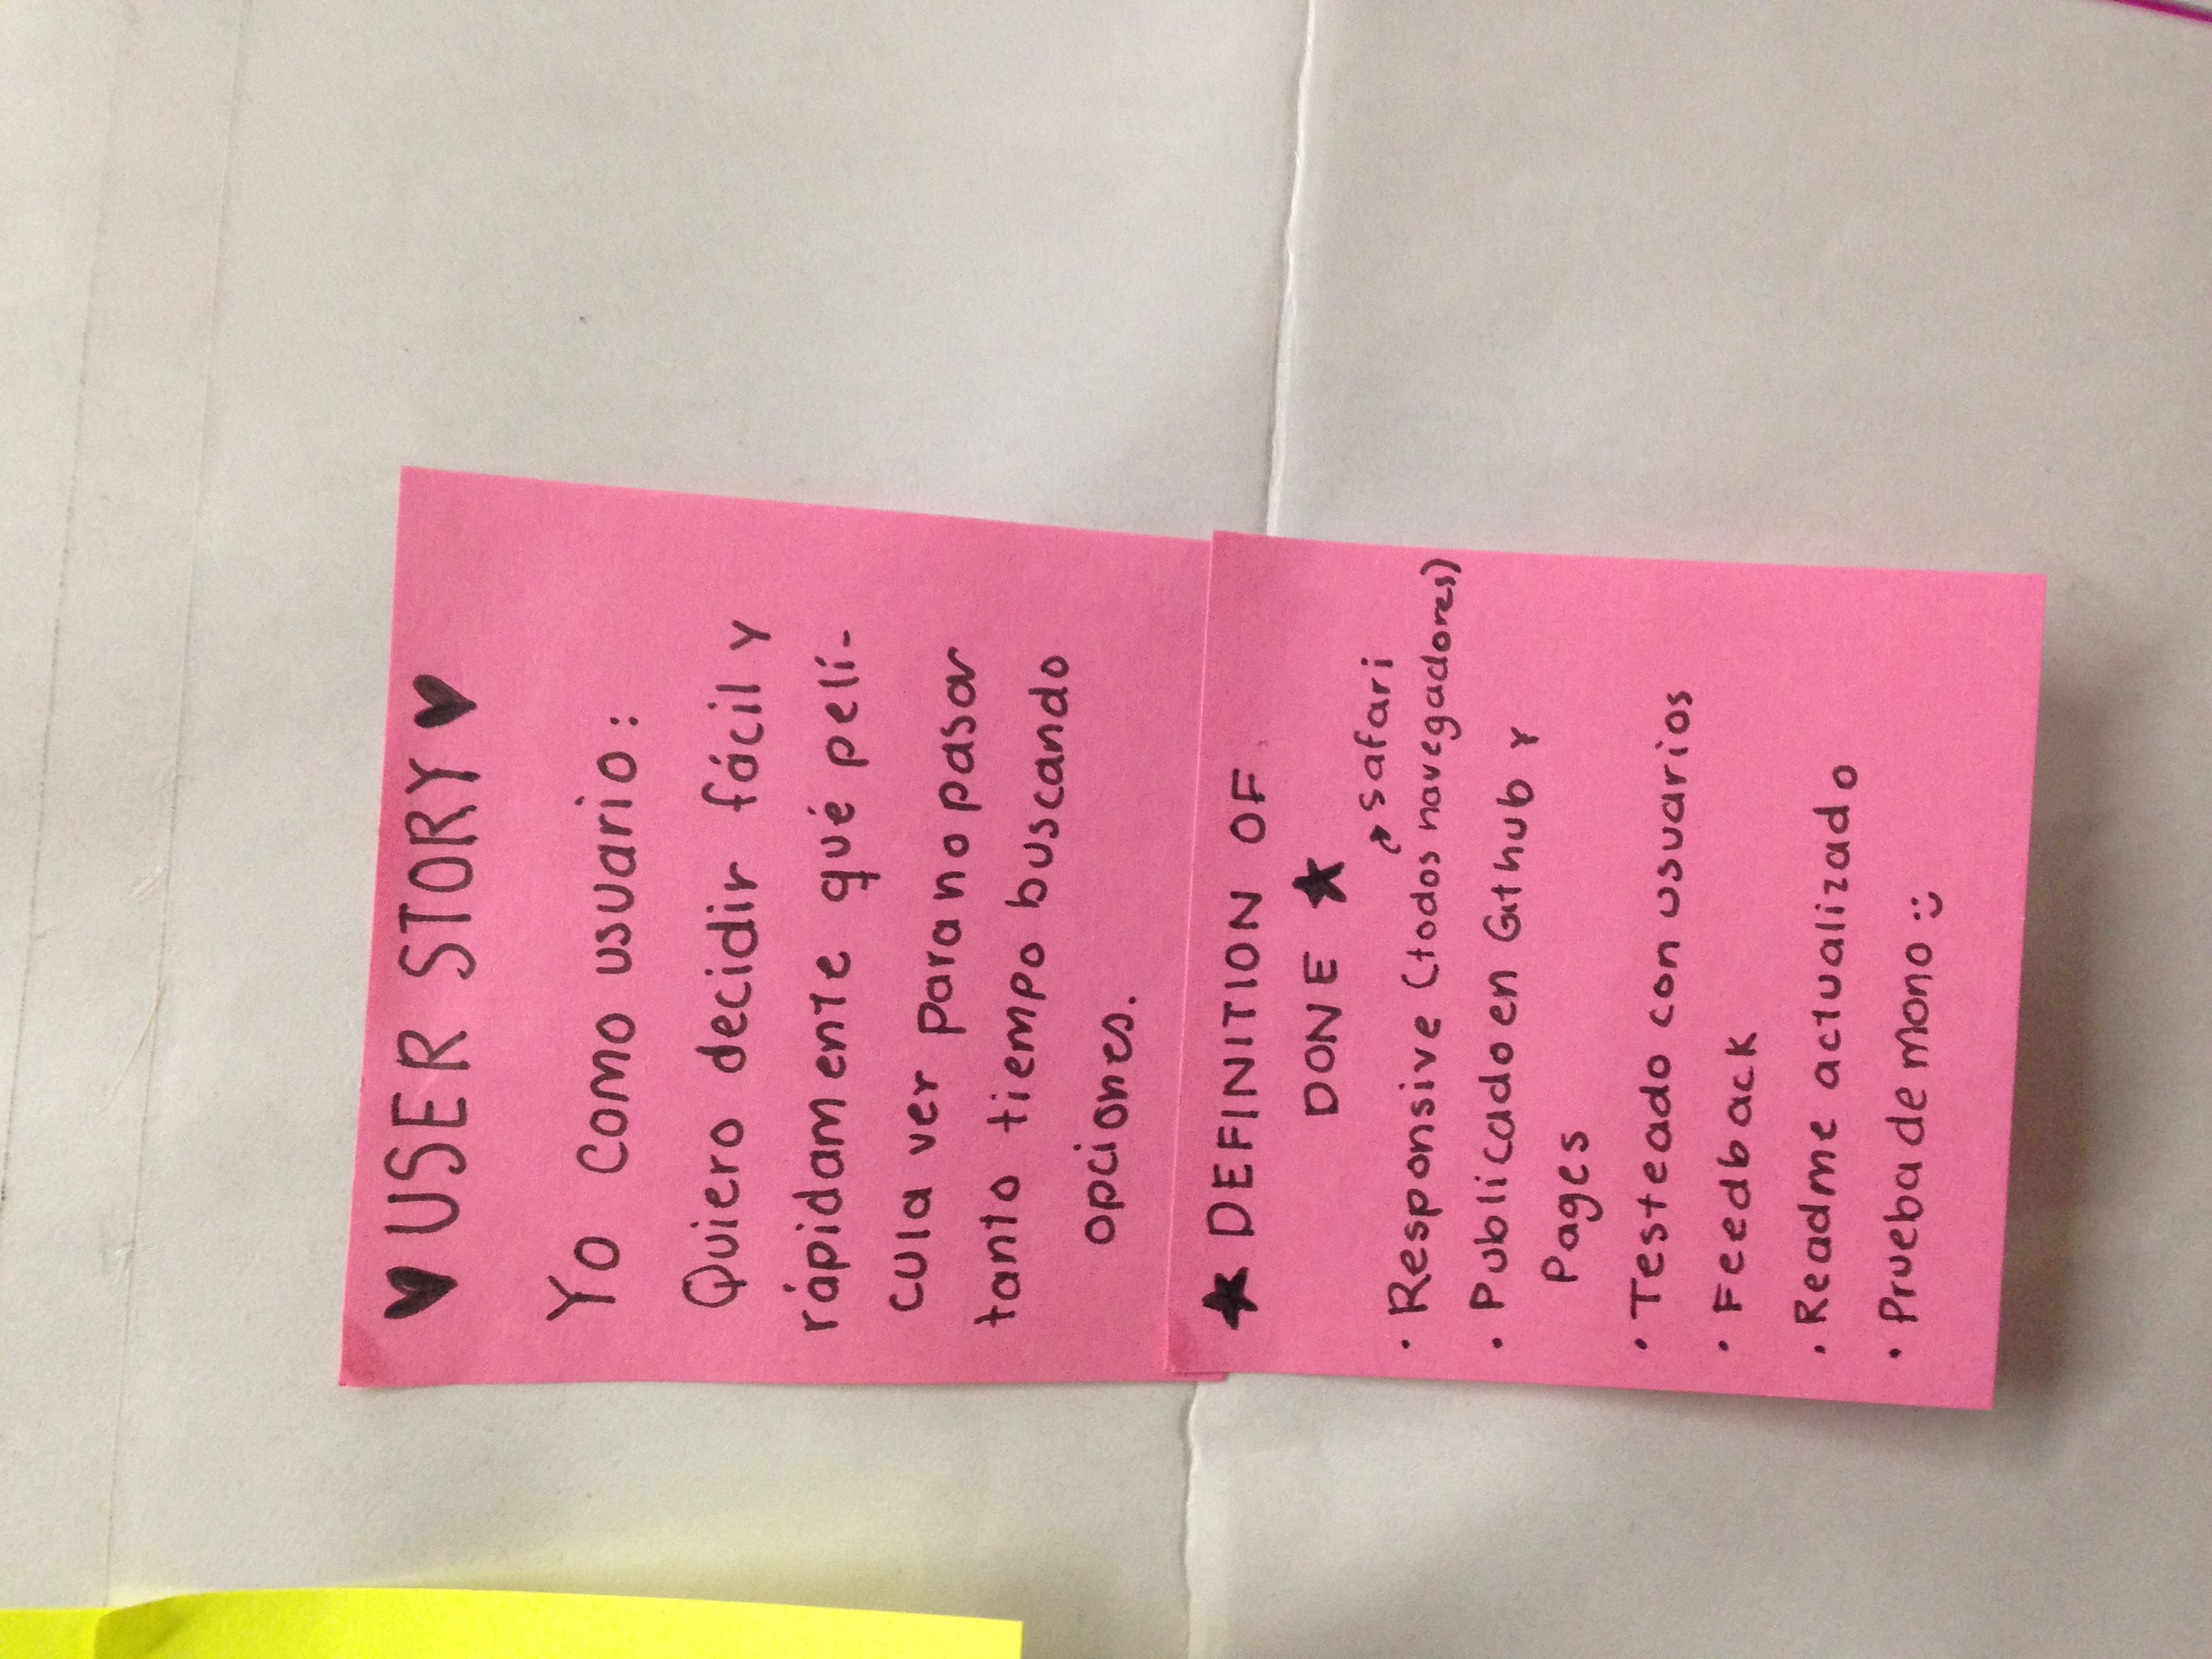 ♥ USER STORY ♥
Yo como usuario:
Quiero decidir fácil y
rápidamente qué pelí-
cula ver para no pasar
tanto tiempo buscando
opciones.
★ DEFINITION OF
DONE ★
safari
· Responsive (todos navegadores)
· Publicado en Github y
Pages
· Testeado con usuarios
· Feedback
· Readme actualizado
· Prueba de mono :)